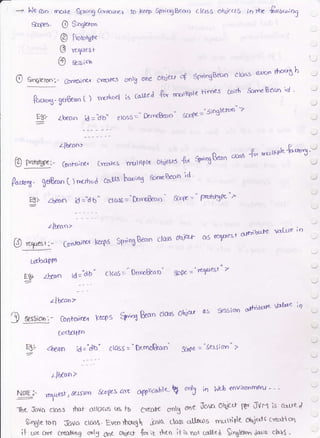 → We can make Spring Container to keep SpringBean class objects in the following
Scopes. ① Singleton
② Prototype
③ request
④ session
① Singleton:- Container creates only one object of SpringBean class even though
factory.getBean( ) method is called for multiple times with SameBean id.
Eg: <bean id="db" class="DemoBean" scope="singleton">
- - - - - -
</bean>
② Prototype:- Container creates multiple objects for Spring Bean class for multiple factory.
factory. getBean( ) method calls having SameBean id.
Eg: <bean id="db" class="DemoBean" Scope="prototype">
- - - -
</bean>
③ request:- Container keeps SpringBean class object as request attribute value in
webappn
Eg: <bean id="db" class="DemoBean" scope="request">
- - - -
</bean>
④ Session:- Container keeps Spring Bean class object as session attribute value in
Eg: <bean id="db" class="DemoBean" scope="session">
- - - -
</bean>
NOTE:- request, session scopes are applicable only in Web environment - - -
The Java class that allows us to create only one Java Object per JVM is called
Singleton Java class. Even though java class allows multiple objects creation
if we are creating only one object for it then it is not called Singleton java class.